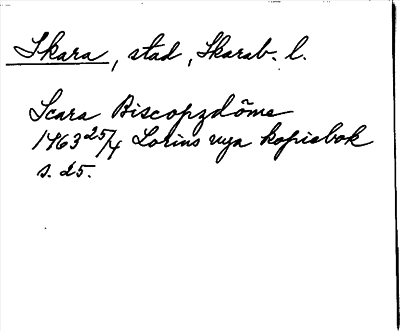 Skara, stad, Skarab. l.
Scara Biscopzdöme
1463 25/4 Lorins nya kopiebok
s. 25.